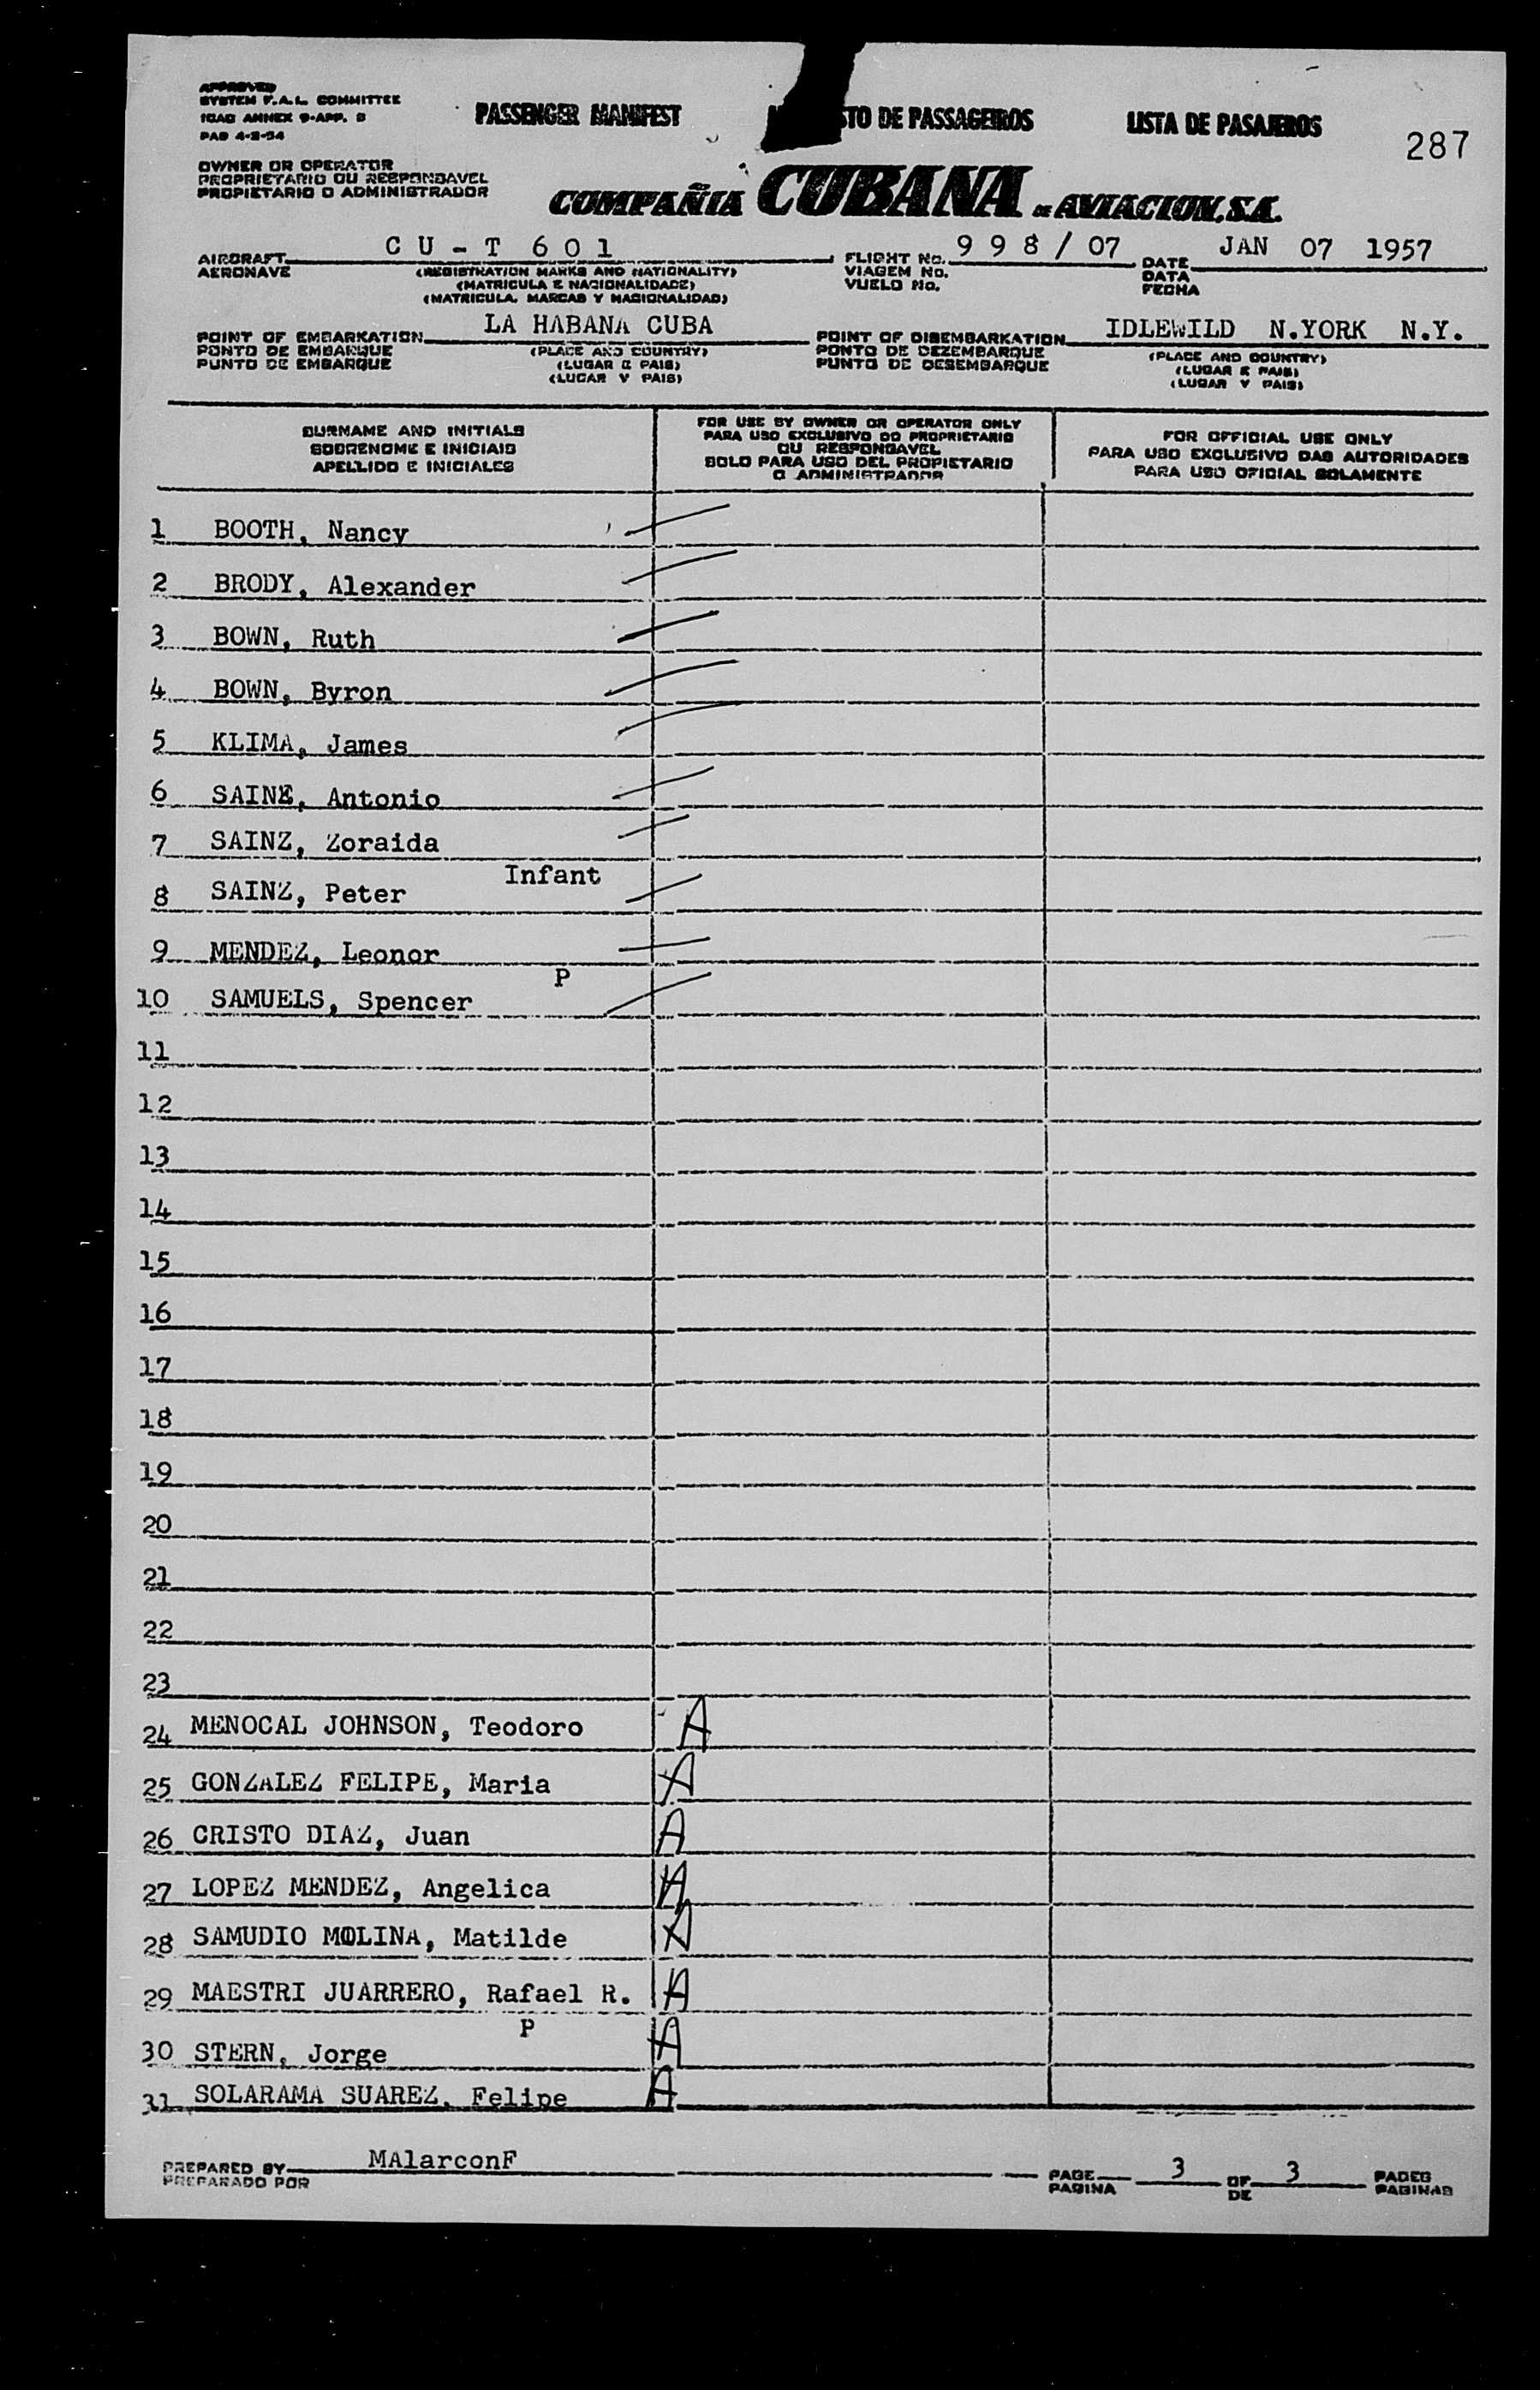 APPROVED
SYSTEM F.A.L. COMMITTEE
ICAO ANNEX 9-APP. 8
PAB 4-2-54
PASSENGER MANIFEST
STO DE PASSAGEIROS
LISTA DE PASAJEROS
287
OWNER OR OPERATOR
PROPRIETARIO OU RESPONSAVEL
PROPIETARIO O ADMINISTRADOR
COMPAÑIA CUBANA DE AVIACION, S.A.
AIRCRAFT CU-T 601 FLIGHT No. 998/07 DATE JAN 07 1957
AERONAVE (REGISTRATION MARKS AND NATIONALITY) VIAGEM No. DATA
(MATRICULA E NACIONALIDADE) VUELO No. FECHA
(MATRICULA, MARCAS Y NACIONALIDAD)
POINT OF EMBARKATION LA HABANA CUBA POINT OF DISEMBARKATION IDLEWILD N.YORK N.Y.
PONTO DE EMBARQUE (PLACE AND COUNTRY) PONTO DE DEZEMBARQUE (PLACE AND COUNTRY)
PUNTO DE EMBARQUE (LUGAR E PAIS) PUNTO DE DESEMBARQUE (LUGAR E PAIS)
(LUGAR Y PAIS) (LUGAR Y PAIS)
SURNAME AND INITIALS
SOBRENOME E INICIAIS
APELLIDO E INICIALES
FOR USE BY OWNER OR OPERATOR ONLY
PARA USO EXCLUSIVO DO PROPRIETARIO
OU RESPONSAVEL
SOLO PARA USO DEL PROPIETARIO
O ADMINISTRADOR
FOR OFFICIAL USE ONLY
PARA USO EXCLUSIVO DAS AUTORIDADES
PARA USO OFICIAL SOLAMENTE
1 BOOTH, Nancy
2 BRODY, Alexander
3 BOWN, Ruth
4 BOWN, Byron
5 KLIMA, James
6 SAINZ, Antonio
7 SAINZ, Zoraida
Infant
8 SAINZ, Peter
9 MENDEZ, Leonor
P
10 SAMUELS, Spencer
11
12
13
14
15
16
17
18
19
20
21
22
23
24 MENOCAL JOHNSON, Teodoro A
25 GONZALEZ FELIPE, Maria A
26 CRISTO DIAZ, Juan A
27 LOPEZ MENDEZ, Angelica A
28 SAMUDIO MOLINA, Matilde A
29 MAESTRI JUARRERO, Rafael R. A
P
30 STERN, Jorge A
31 SOLARAMA SUAREZ, Felipe A
PREPARED BY MAlarconF PAGE 3 OF 3 PAGES
PREPARADO POR PAGINA DE PAGINAS